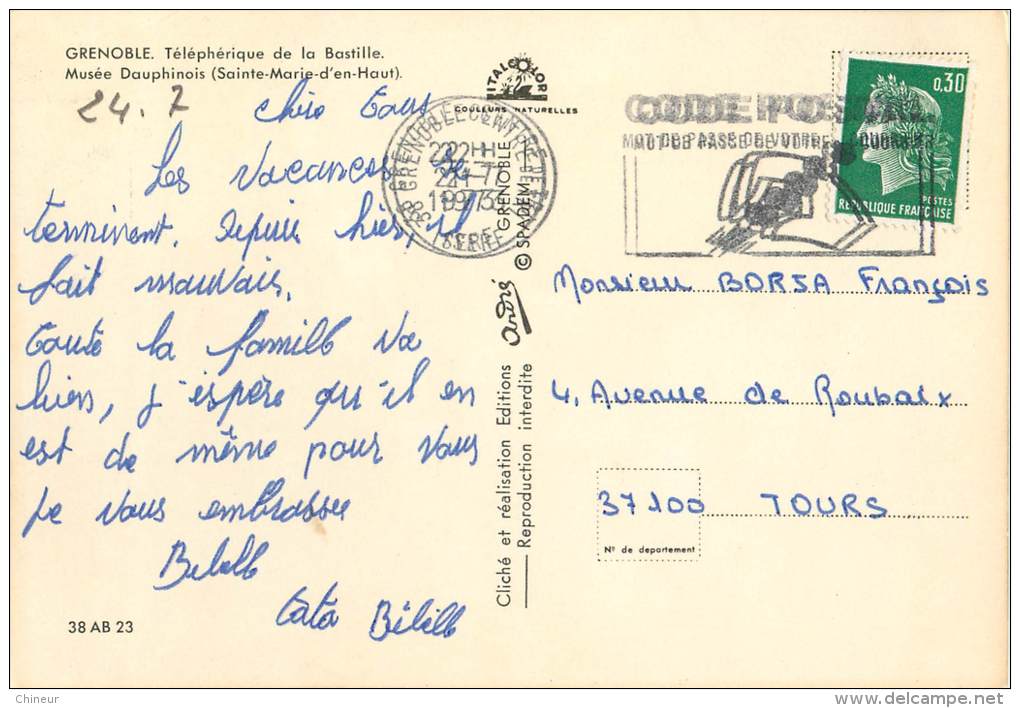 GRENOBLE. Téléphérique de la Bastille.
Musée Dauphinois (Sainte-Marie-d'en-Haut).
24.7
Chère Tous
Les vacances se
terminent. Depuis hier, il
fait mauvais.
Toute la famille va
bien, j'espère qu'il en
est de même pour vous
Je vous embrasse
Bébelle
Tata Bébelle
38 AB 23
ITALCOLOR
COULEURS NATURELLES
38 GRENOBLE CENTRE DE TRI
22H
24-7
1973
ISERE
Cliché et réalisation Editions André GRENOBLE
Reproduction interdite © SPADEM
CODE POSTAL
MOT DE PASSE DE VOTRE COURRIER
0,30
POSTES
REPUBLIQUE FRANÇAISE
Monsieur BORSA François
4, Avenue de Roubaix
37100 TOURS
Nº de departement
Chineur
delcampe.net